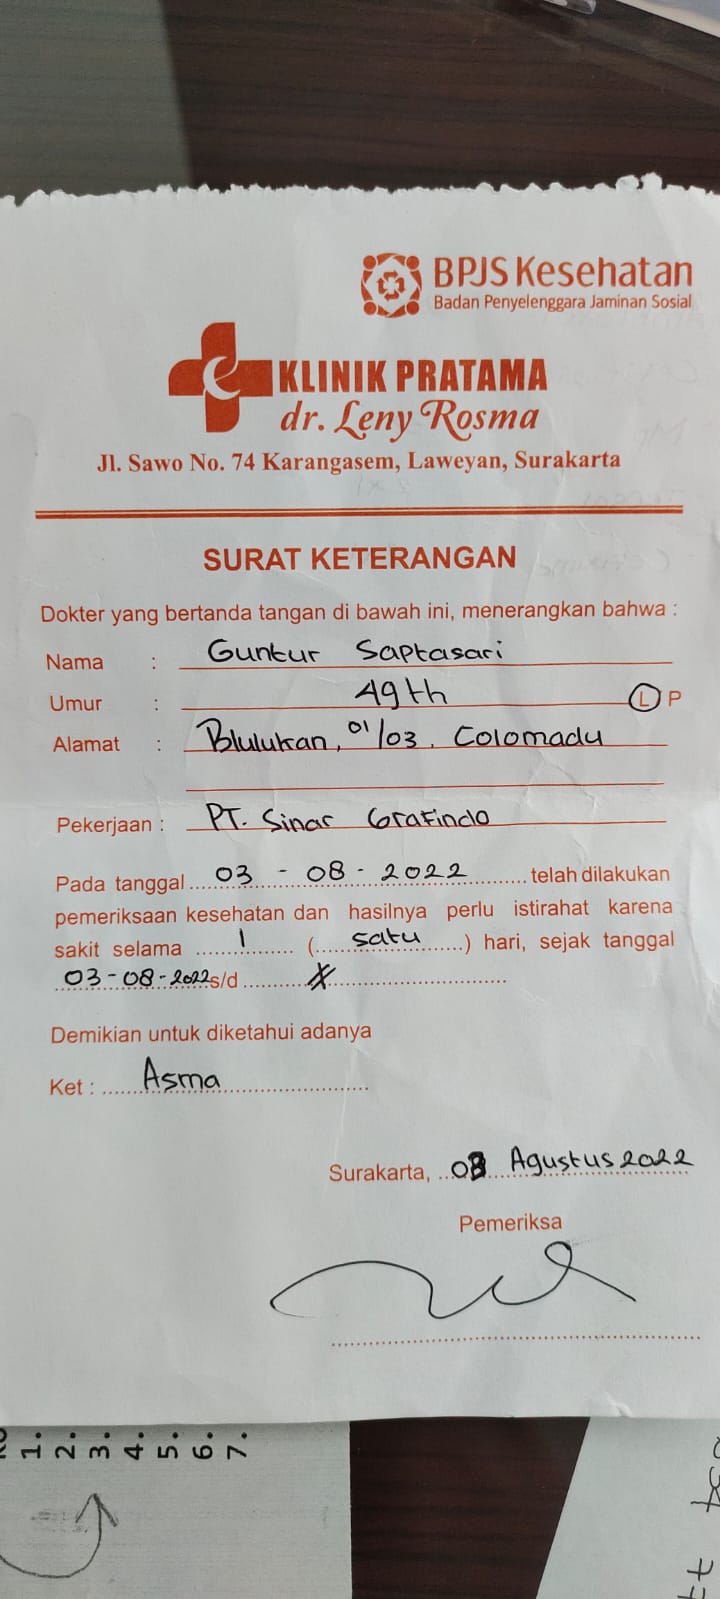 BPJS Kesehatan
Badan Penyelenggara Jaminan Sosial
KLINIK PRATAMA
dr. Leny Rosma
Jl. Sawo No. 74 Karangasem, Laweyan, Surakarta
SURAT KETERANGAN
Dokter yang bertanda tangan di bawah ini, menerangkan bahwa :
Nama : Guntur Saptasari
Umur : 49th L P
Alamat : Blulukan, 01/03, Colomadu
Pekerjaan : PT. Sinar Grafindo
Pada tanggal 03 - 08 - 2022 telah dilakukan
pemeriksaan kesehatan dan hasilnya perlu istirahat karena
sakit selama 1 (satu) hari, sejak tanggal
03-08-2022 s/d
Demikian untuk diketahui adanya
Ket : Asma
Surakarta, 03 Agustus 2022
Pemeriksa
1.
2.
3.
4.
5.
6.
7.